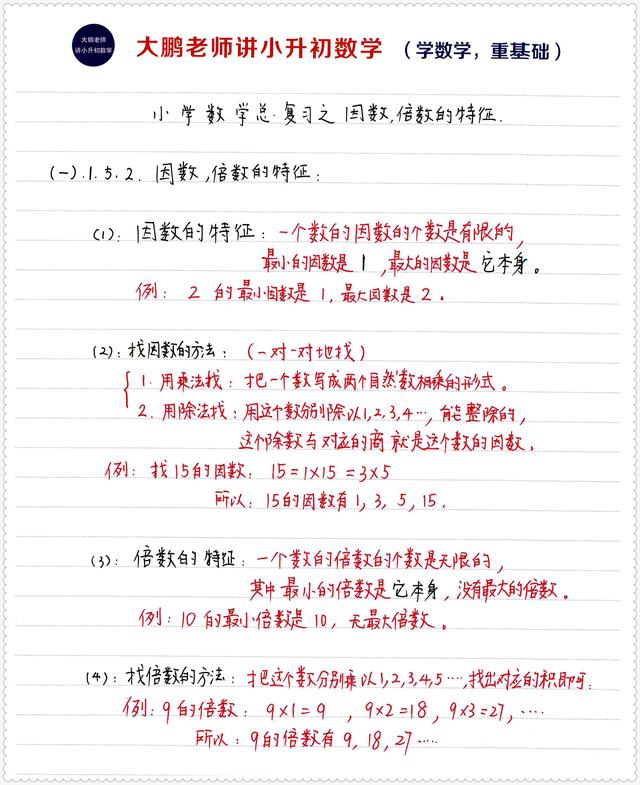 大鹏老师
讲小升初数学
大鹏老师讲小升初数学 （学数学，重基础）
小学数学总复习之因数,倍数的特征.
(一).1.5.2. 因数,倍数的特征:
(1): 因数的特征: 一个数的因数的个数是有限的,
最小的因数是1,最大的因数是它本身。
例: 2的最小因数是1,最大因数是2。
(2): 找因数的方法: (一对一对地找)
1. 用乘法找: 把一个数写成两个自然数相乘的形式。
2. 用除法找: 用这个数分别除以1,2,3,4…, 能整除的,
这个除数与对应的商就是这个数的因数。
例: 找15的因数: 15=1×15=3×5
所以: 15的因数有1, 3, 5, 15.
(3): 倍数的特征: 一个数的倍数的个数是无限的,
其中最小的倍数是它本身,没有最大的倍数。
例: 10的最小倍数是10, 无最大倍数。
(4): 找倍数的方法: 把这个数分别乘以1,2,3,4,5…,找出对应的积即可.
例: 9的倍数: 9×1=9 , 9×2=18, 9×3=27, ……
所以: 9的倍数有9, 18, 27……